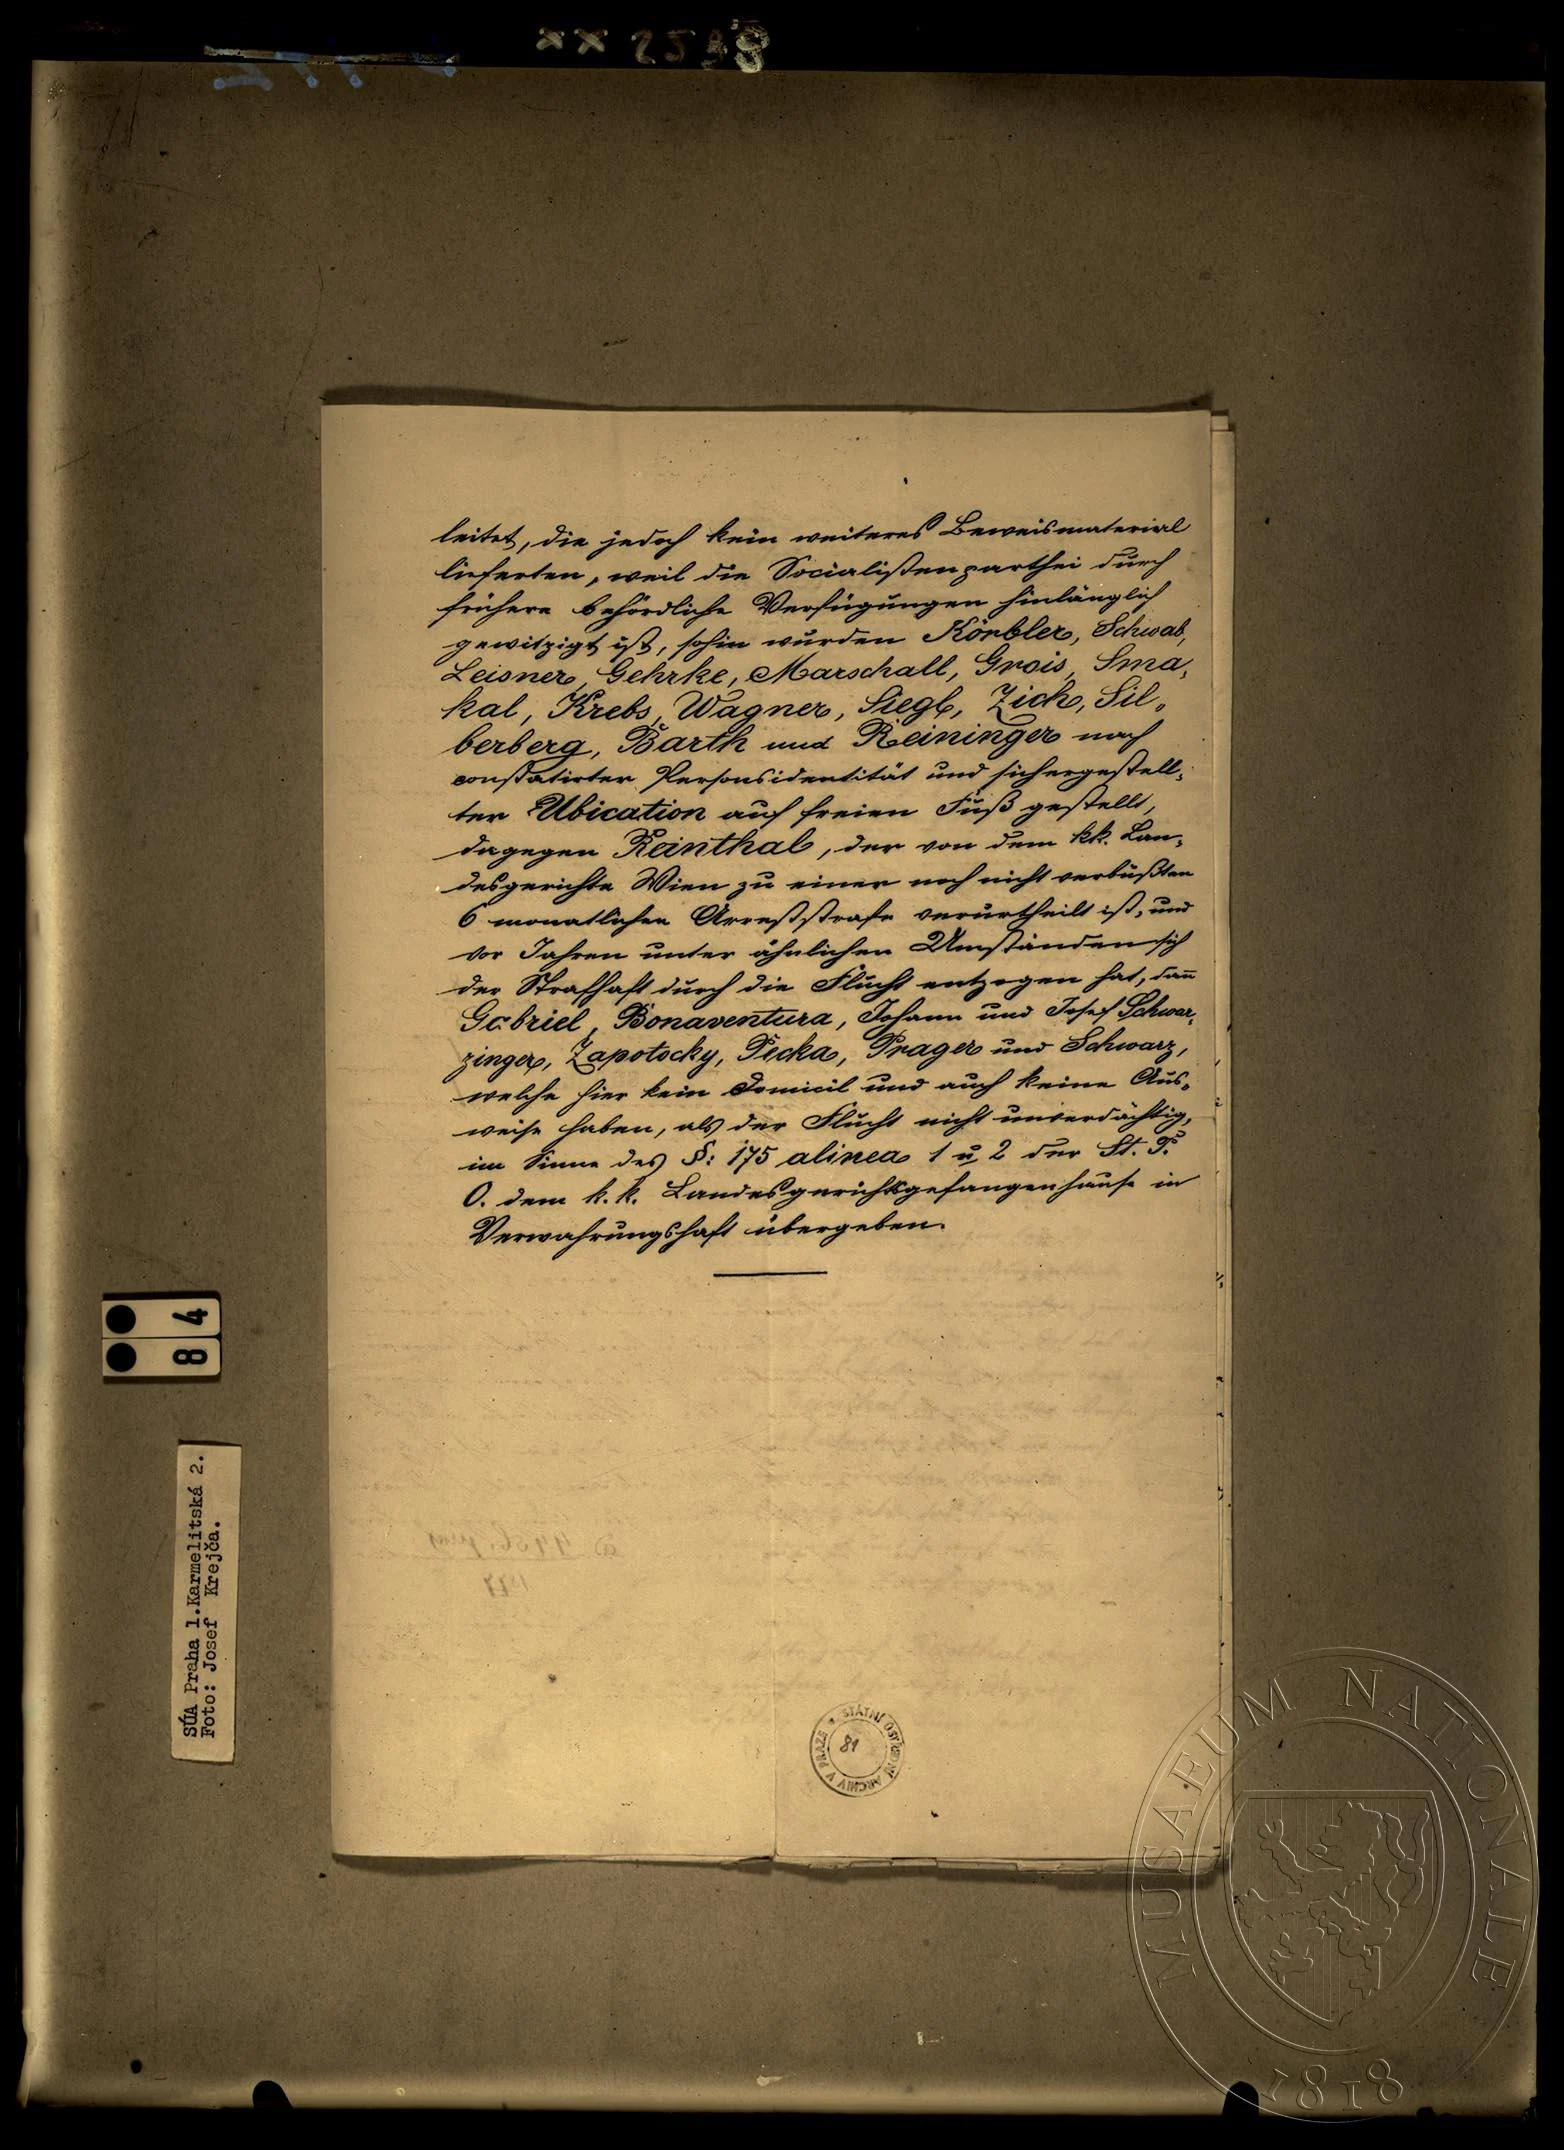 xx 2598
leitet, die jedoch kein weiteres Beweismaterial
lieferten, weil die Socialistenparthei durch
frühere behördliche Verfügungen hinlänglich
gewitzigt ist, sohin wurden Körbler, Schwab,
Leisner, Gehrke, Marschall, Grois, Sma-
kal, Krebs, Wagner, Siegl, Zich, Sil-
berberg, Barth und Reininger nach
constatirter Personsidentität und sichergestell-
ter Ubication auf freien Fuß gestellt,
dagegen Reinthal, der von dem kk. Lan-
desgerichte Wien zu einer noch nicht verbüßten
6 monatlichen Arreststrafe verurtheilt ist, und
vor Jahren unter ähnlichen Umständen sich
der Strafhaft durch die Flucht entzogen hat, dann
Gabriel, Bonaventura, Johann und Josef Schwar-
zinger, Zapotocky, Pecka, Prager und Schwarz,
welche hier kein Domicil und auch keine Aus-
weise haben, als der Flucht nicht unverdächtig,
im Sinne des §: 175 alinea 1 u 2 der St. P.
O. dem k. k. Landesgerichtsgefangenhause in
Verwahrungshaft übergeben.
84
SÚA Praha 1.Karmelitská 2.
Foto: Josef Krejča.
STÁTNÍ ÚSTŘEDNÍ ARCHIV V PRAZE
81
MUSAEUM NATIONALE
1818